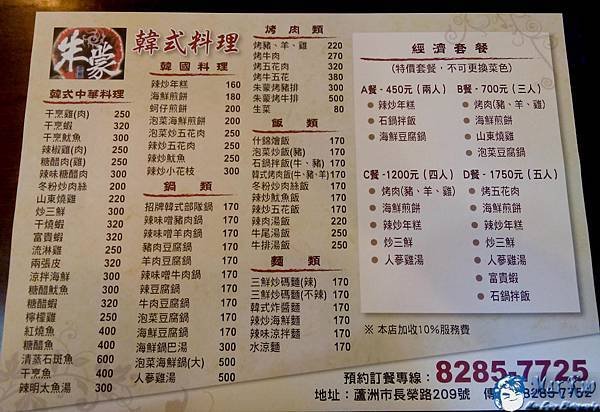 朱蒙
韓式料理
韓式中華料理
干烹雞(肉) 250
干烹蝦 320
干烹魷魚 300
辣椒雞(肉) 250
糖醋肉(雞) 250
辣味糖醋肉 300
冬粉炒肉絲 200
山東燒雞 250
炒三鮮 300
干燒蝦 320
富貴蝦 320
流淋雞 250
兩張皮 320
涼拌海鮮 300
糖醋魷魚 300
糖醋蝦 320
檸檬雞 250
紅燒魚 400
糖醋魚 400
清蒸石斑魚 600
干烹魚 400
辣明太魚湯 300
韓國料理
辣炒年糕 160
海鮮煎餅 180
蚵仔煎餅 200
泡菜海鮮煎餅 200
泡菜炒五花肉 200
辣炒五花肉 200
辣炒魷魚 200
辣炒小花枝 300
鍋 類
招牌韓式部隊鍋 170
辣味噌豬肉鍋 170
辣味噌羊肉鍋 170
豬肉豆腐鍋 170
羊肉豆腐鍋 170
辣味噌牛肉鍋 170
辣豆腐鍋 170
牛肉豆腐鍋 170
泡菜豆腐鍋 170
海鮮豆腐鍋 170
海鮮鍋巴湯 300
泡菜海鮮鍋(大) 350
人蔘雞湯 500
烤肉類
烤豬、羊、雞 220
烤牛肉 270
烤五花肉 320
烤牛五花 380
朱蒙烤豬排 300
朱蒙烤牛排 500
生菜 80
飯 類
什錦燴飯 170
泡菜炒飯(豬) 170
石鍋拌飯(牛、豬) 170
韓式烤肉飯(牛、豬、羊) 170
冬粉炒肉絲飯 170
辣炒魷魚飯 170
辣炒五花飯 170
辣肉湯飯 220
牛尾湯飯 250
牛排湯飯 250
麵 類
三鮮炒碼麵(辣) 170
三鮮炒碼麵(不辣) 170
韓式炸醬麵 170
辣炒海鮮麵 170
辣味涼拌麵 170
水涼麵 170
經濟套餐
(特價套餐，不可更換菜色)
A餐 - 450元（兩人）
辣炒年糕
石鍋拌飯
海鮮豆腐鍋
B餐 - 700元（三人）
烤肉(豬、羊、雞)
海鮮煎餅
山東燒雞
泡菜豆腐鍋
C餐 -1200元（四人）
烤肉(豬、羊、雞)
海鮮煎餅
辣炒年糕
炒三鮮
人蔘雞湯
D餐 - 1750元（五人）
烤五花肉
海鮮煎餅
辣炒年糕
炒三鮮
人蔘雞湯
富貴蝦
石鍋拌飯
※ 本店加收10%服務費
預約訂餐專線：8285-7725
地址：蘆洲市長榮路209號